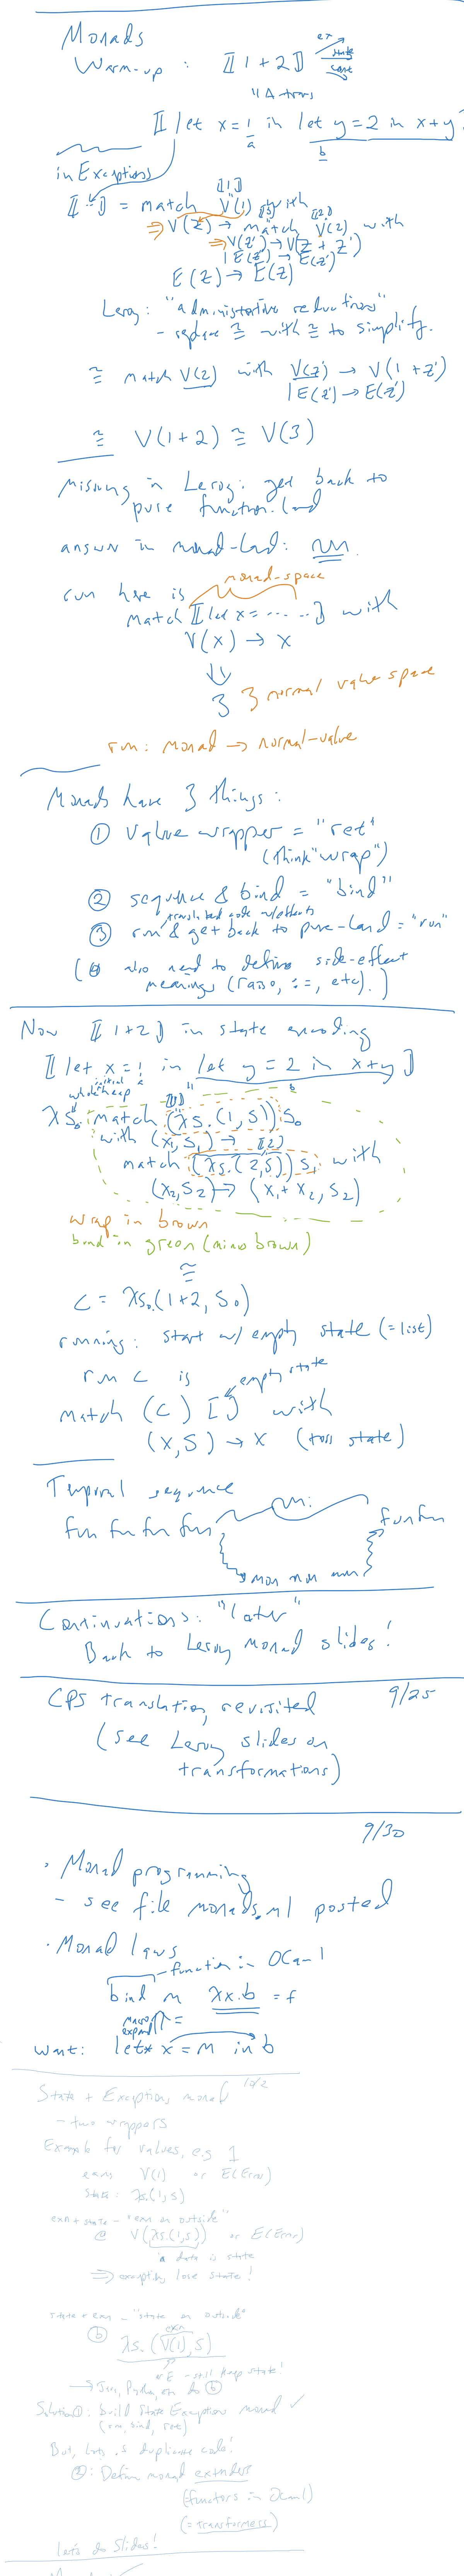 Monads
Warm-up : ⟦1+2⟧ state
cont
A-trans
⟦let x=1 in let y=2 in x+y⟧
a b
in Exceptions
⟦1⟧
⟦··⟧ = match V(1) with
⟦2⟧
⇒ V(z) → match V(2) with
⇒ V(z') → V(z + z')
| E(z') → E(z')
E(z) → E(z)
Leroy: "administrative reductions"
- replace ≅ with ≅ to simplify.
≅ match V(2) with V(z') → V(1+z')
| E(z') → E(z')
≅ V(1+2) ≅ V(3)
Missing in Leroy: get back to
pure function-land
answer in monad-land: run.
monad-space
run here is
match ⟦let x= ····⟧ with
V(x) → x
⇓
3 3 normal value space
run: monad → normal-value
Monads have 3 things:
① value wrapper = "ret"
(think "wrap")
② sequence & bind = "bind"
translated code w/effects
③ run & get back to pure-land = "run"
(④ also need to define side-effect
meanings (raise, :=, etc).)
Now ⟦1+2⟧ in state encoding
⟦let x=1 in let y=2 in x+y⟧
a b
initial
whole heap ⟦1⟧
λS₀. match (λs.(1,s)) S₀
with (x₁,S₁) → ⟦2⟧
match (λs.(2,s)) S₁ with
(x₂,S₂) → (x₁+x₂, S₂)
wrap in brown
bind in green (minus brown)
≅
C = λS₀.(1+2, S₀)
running: start w/ empty state (=list)
run c is empty state
match (C) [] with
(x,s) → x (toss state)
Temporal sequence
run:
fun fun fun fun fun fun
mon mon mon
Continuations: "later"
Back to Leroy monad slides!
CPS translation, revisited 9/25
(see Leroy slides on
transformations)
9/30
· Monad programming
- see file monads.ml posted
· Monad laws
- function in OCaml
bind m λx.b = f
macro
expand ⇑ =
want: let* x = m in b
State + Exception, monad 10/2
- two wrappers
Example for values, e.g 1
exns V(1) or E(Error)
State: λs.(1,s)
exn + state - "exn on outside"
@ V(λs.(1,s)) or E(Error)
a data is state
⇒ exception, lose state!
state + exn - "state on outside"
exn
ⓑ λs.(V(1),s)
or E - still keep state!
→ Java, Python, etc do ⓑ
Solution①: build State Exception monad ✓
(run, bind, ret)
But, lots of duplicate code!
②: Define monad extenders
(functors in OCaml)
(=transformers)
Let's do Slides!